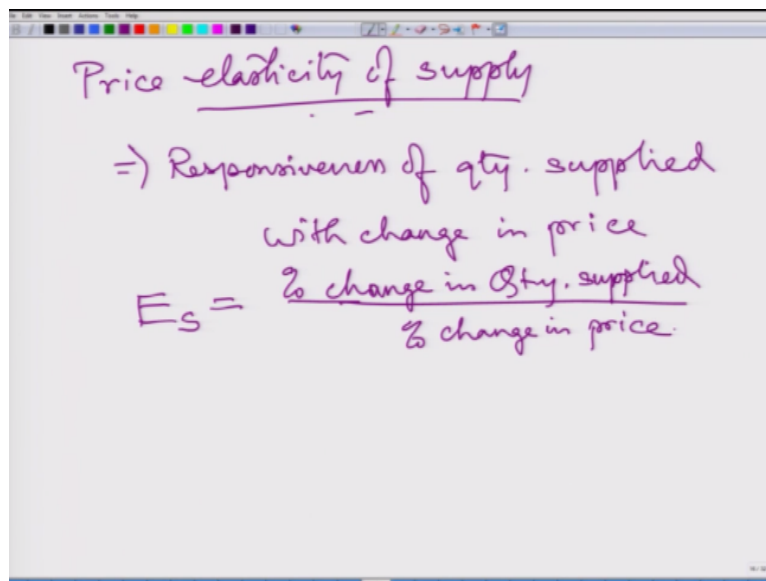 File Edit View Insert Actions Tools Help
Price elasticity of supply
=) Responsiveness of qty. supplied
with change in price
Es = % change in Qty. supplied
% change in price.